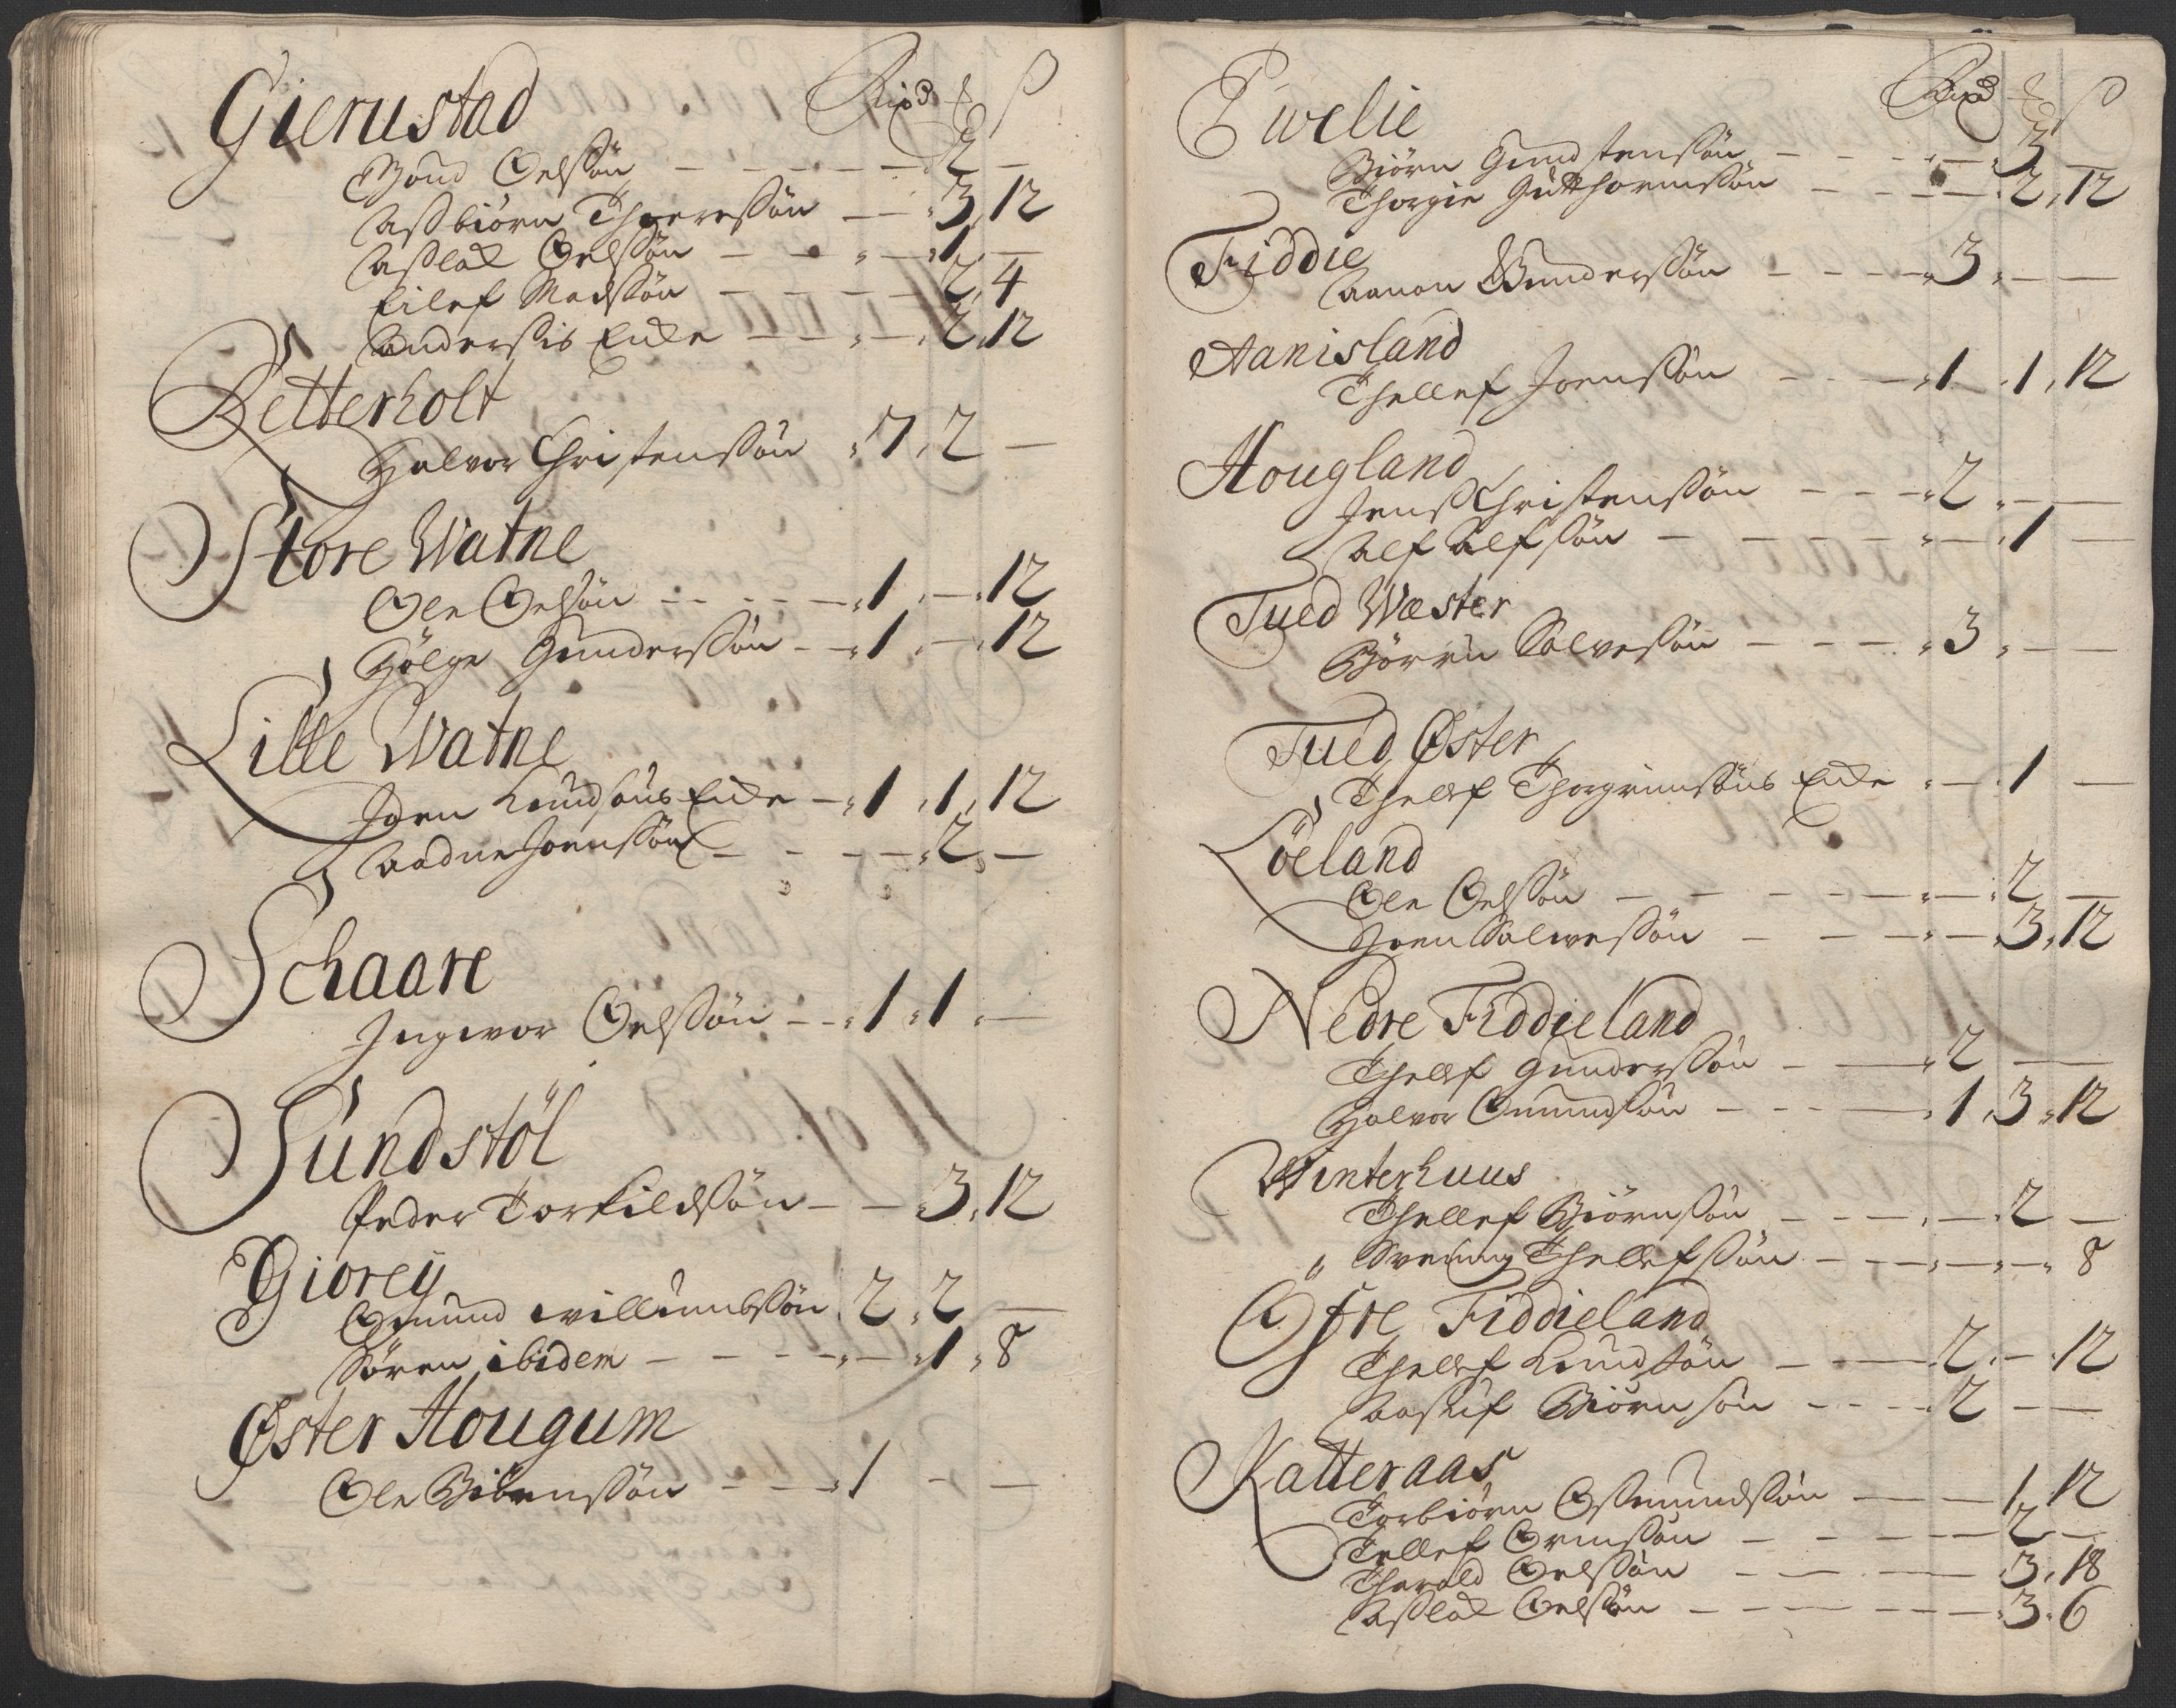 Gierustad Rixd ß
Gond Oelsøn — 2 —
Asbiørn Thorersøn — 3, 12
Aslak Oelsøn — 1 —
Eilef Madsøn — 2, 4
Anders is Encke — 2, 12
Retterholt
Halvor Christensøn 7, 2 —
Store Watne
Ole Oelsøn — 1, — 12
Hølge Gundersøn — 1, — 12
Lille Watne
Joen Knudsøns Encke — 1, 1, 12
Aadne Joensøn — 2, —
Schaare
Ingwor Oelsøn — 1, 1, —
Sundstøl
Peder Torkildsøn — 3, 12
Giorey
Omund Willumbsøn 2, 2 —
Søren ibidem — 1, 8
Øster Hougum
Ole Biørensøn — 1 — —
Ewelie Rixd ß
Biørn Gundstensøn — 3 —
Thorgie Gutthormsøn — 2, 12
Fiddie
Aanon Gundersøn — 3, — —
Aanisland
Thellef Joensøn — 1, 1, 12
Hougland
Jens Christensøn — 2, — —
Alf Alfsøn — 1 —
Tued Wæster
Børren Salvesøn — 3, — —
Tued Øster
Thellef Thorgrimsøns Encke — 1 —
Löeland
Ole Oelsøn — 2, —
Joen Salwesøn — 3, 12
Nedre Fiddieland
Thellef Gundersøn — 2 —
Halvor Omundsøn — 1, 3, 12
Winterhuus
Thellef Biørnsøn — 2 —
" Svening Thellefsøn — 8
Øfre Fiddieland
Thellef Knudsøn — 2, — 12
Aasluf Biørnsøn — 2 — —
Katteraas
Torbiørn Osmundsøn — 1, 12
Tellef Ormsøn — 2 —
Tharald Oelsøn — 3, 18
Aslak Oelsøn — 3, 6